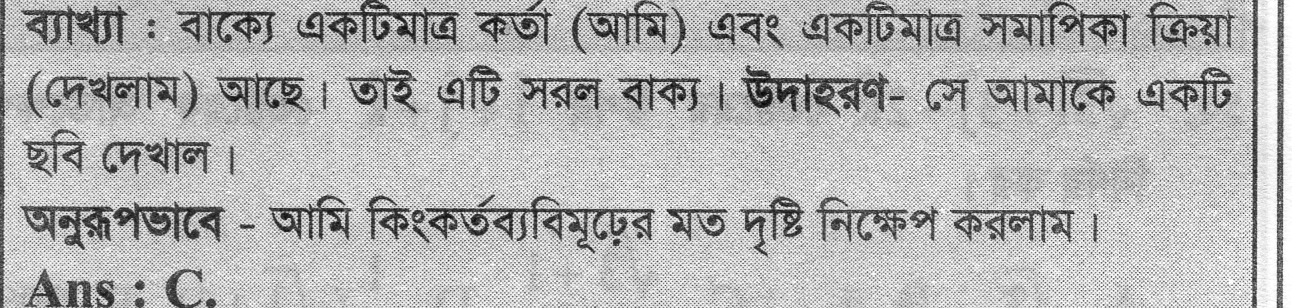 ব্যাখ্যা : বাক্যে একটিমাত্র কর্তা (আমি) এবং একটিমাত্র সমাপিকা ক্রিয়া
(দেখলাম) আছে। তাই এটি সরল বাক্য। উদাহরণ- সে আমাকে একটি
ছবি দেখাল।
অনুরূপভাবে - আমি কিংকর্তব্যবিমূঢ়ের মত দৃষ্টি নিক্ষেপ করলাম।
Ans : C.